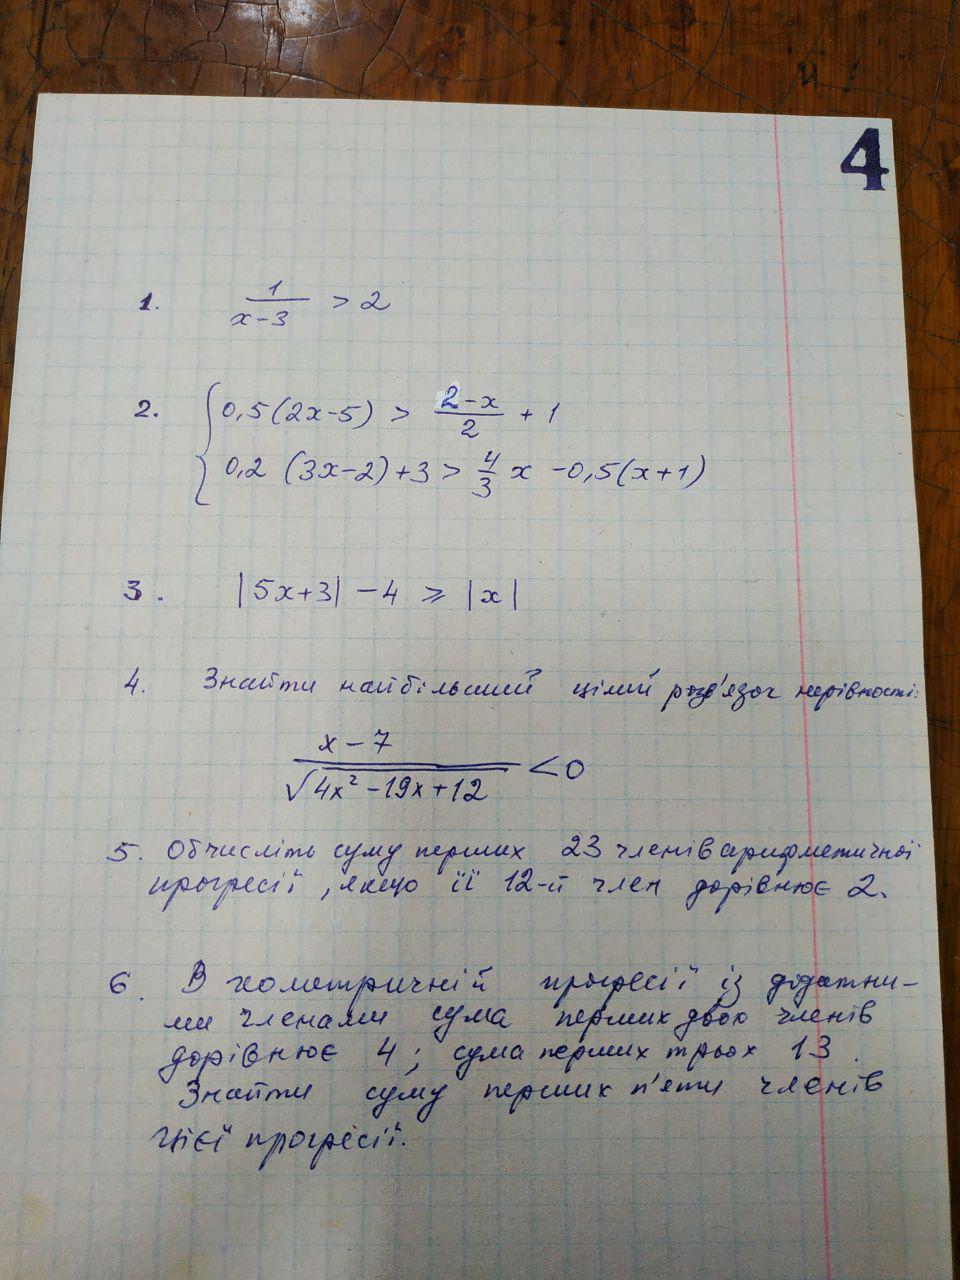 4
1. 1/(x-3) > 2
2. { 0,5(2x-5) > (2-x)/2 + 1
0,2 (3x-2)+3 > 4/3 x -0,5(x+1)
3. |5x+3| -4 ⩾ |x|
4. Знайти найбільший цілий розв'язок нерівності:
(x-7)/√(4x²-19x+12) <0
5. Обчисліть суму перших 23 членів арифметичної
прогресії, якщо її 12-й член дорівнює 2.
6. В геометричній прогресії із додатни-
ми членами сума перших двох членів
дорівнює 4; сума перших трьох 13.
Знайти суму перших п'яти членів
цієї прогресії.